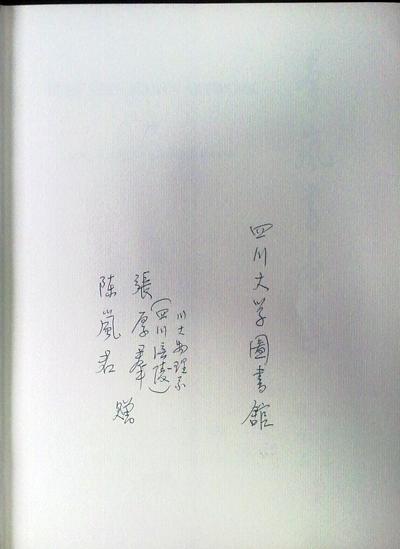 四川大学圖書館
川大物理系
(四川涪陵)
張厚羣
陈嵐君
赠